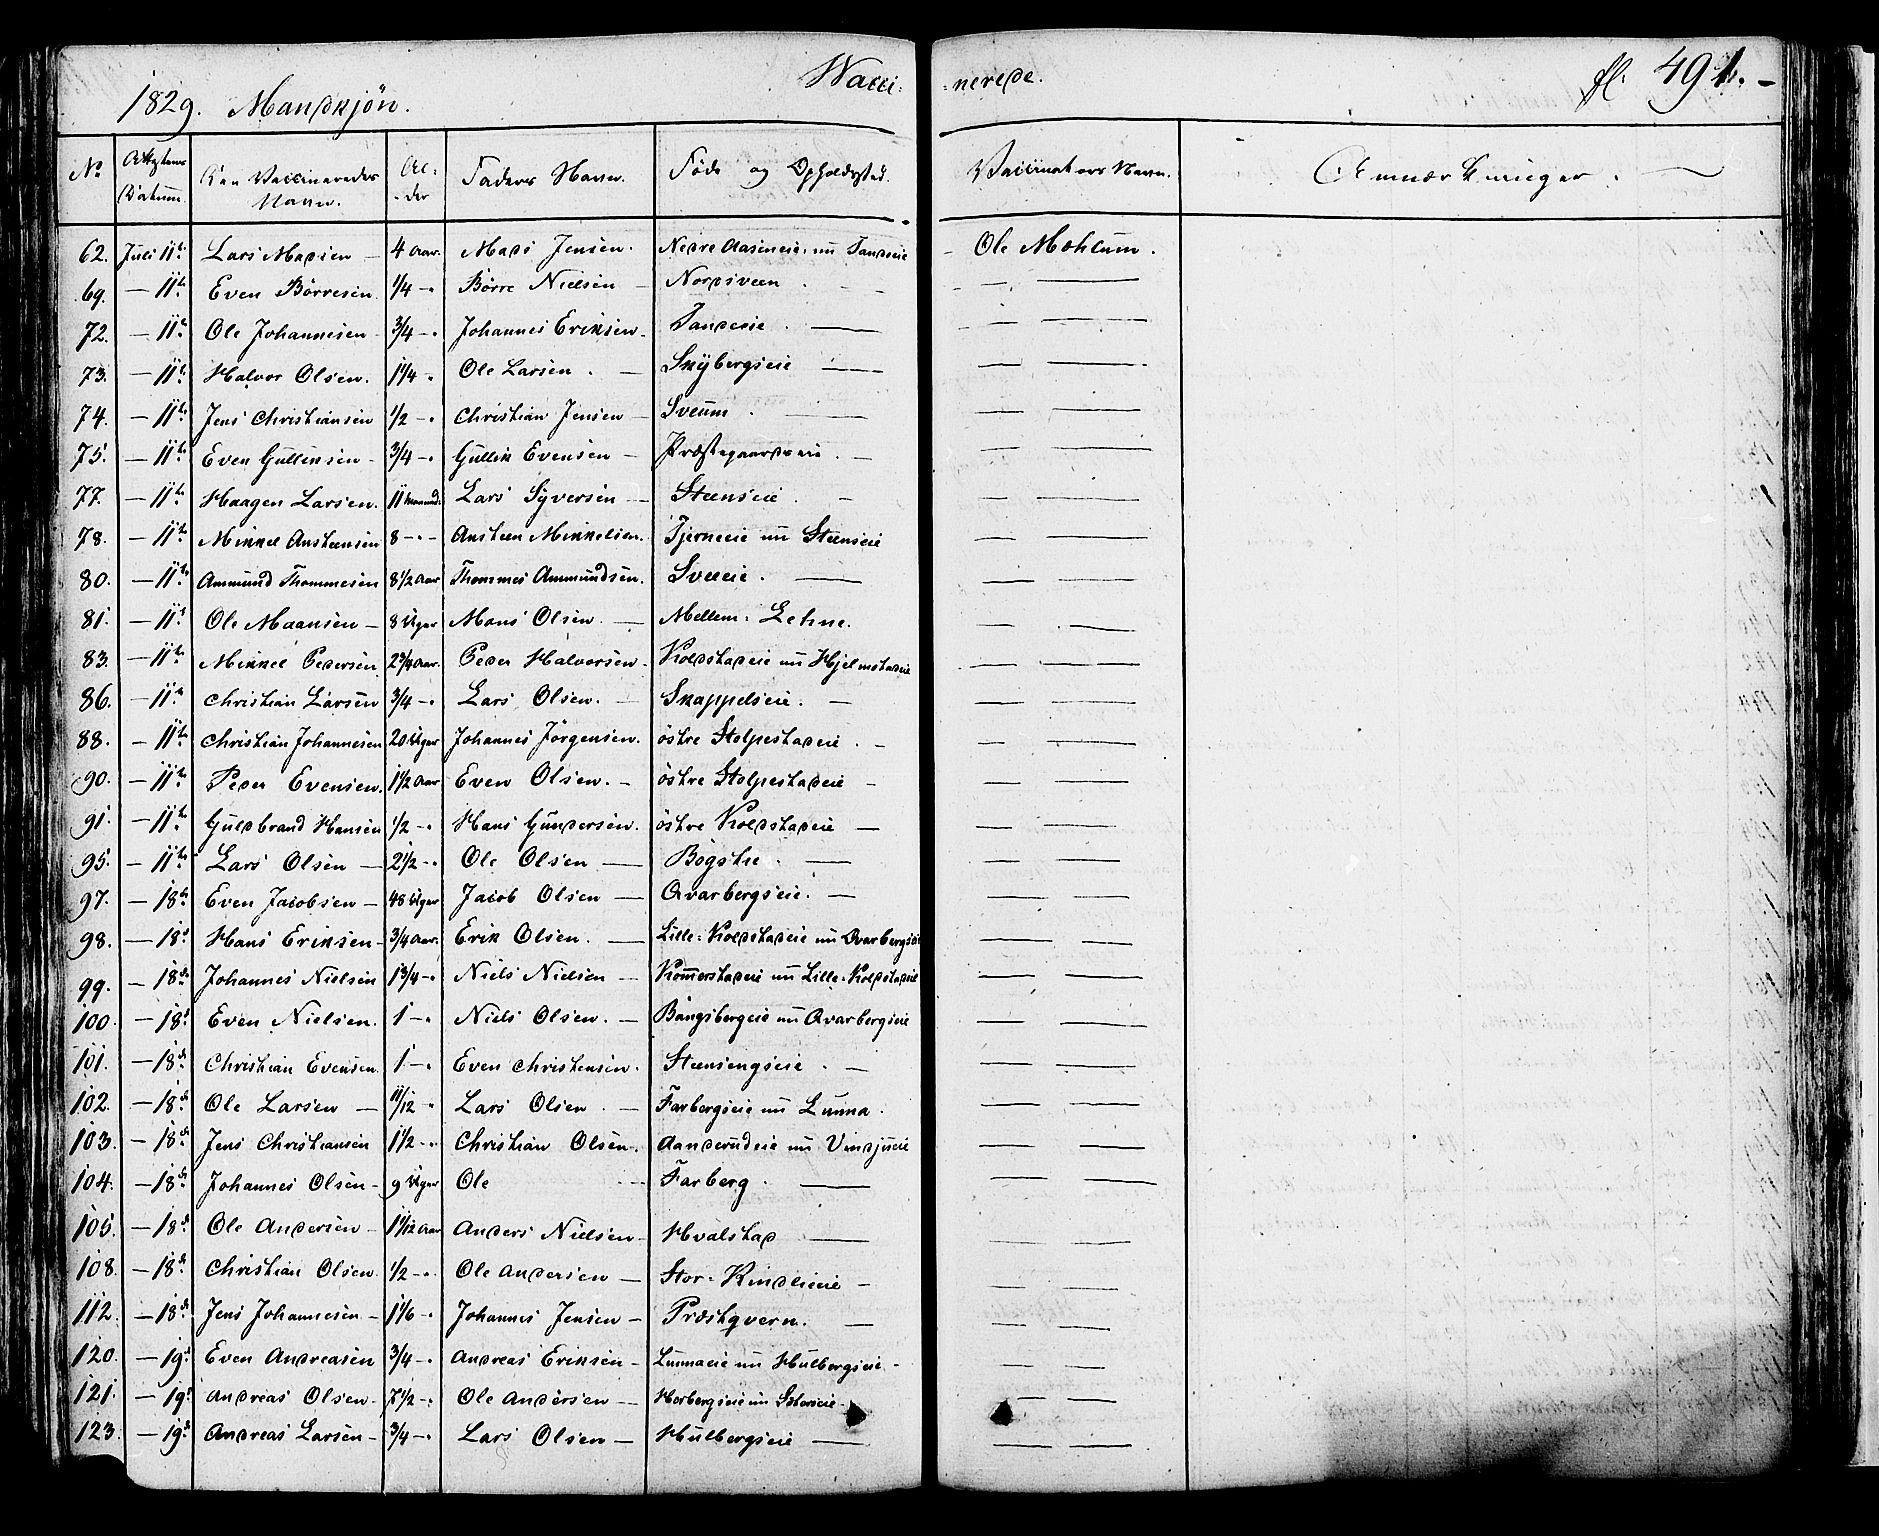 1829. Mandkjön. Vacci: =nerede. fl. 491.
No Attestens Datum. Den Vaccineredes Navn. Al-der Faders Navn. Føde og Opholdssted. Vaccinateurs Navn. Anmærkninger.
62. Juli 11te Lars Madsen — 4 Aar. Mads Jensen. Nedre Aasineie. nu Tandeie — Ole Mæhlum.
69. — 11te Even Børresen. 1/4 — Børre Nielsen — Nordsveen. — —
72. — 11te Ole Johannesen — 3/4 — Johannes Eriksen — Tandeeie. — — —
73. — 11te Halvor Olsen. 1 1/4 Ole Larsen. — Skÿbergseie — — —
74. — 11te Jens Christiansen 1/2 — Christian Jensen — Sveum. — — —
75. — 11te Even Gulliksen — 3/4 — Gullik Evensen — Præstegaardseie. — — —
77. — 11te Haagen Larsen. 11 Maaned: Lars Syversen — Steenseie. — — —
78. — 11te Mikkel Ansteensen 8 — Ansteen Mikkelsen. Tjerneeie nu Steenseie — —
80. — 11te Ammund Thommesen 8 1/2 Aar Thommes Ammundsen. Sveeie. — — —
81. — 11te Ole Maansen — 8 Uger Mons Olsen. — Mellem-Lehne. — —
83. — 11te Mikkel Pedersen 2 3/4 Aar. Peder Halvorsen — Koldstadeie nu Hjelmstadeie — —
86. — 11te Christian Larsen 3/4 — Lars Olsen. — Skappelseie. — — —
88. — 11te Christian Johannesen 20 Uger Johannes Jørgensen. östre Stolpestadeie. — — —
90. — 11te Peder Evensen. 1 1/2 Aar Even Olsen. — östre Stolpestadeie — — —
91. — 11te Guldbrand Hansen 1/2 — Hans Gundersen. östre Koldstadeie — — —
95. — 11te Lars Olsen — 2 1/2 — Ole Olsen — Bøgstie. — — —
97. — 18de Even Jacobsen — 48 Uger Jacob Olsen — Qvarbergseie. — — —
98. — 18de Hans Eriksen — 3/4 Aar. Erik Olsen. — Lille-Koldstadeie nu Qvarbergseie — —
99. — 18de Johannes Nielsen 1 3/4 — Niels Nielsen — Kommerstadeie nu Lille-Koldstadeie — —
100. — 18de Even Nielsen. 1 — Niels Olsen. — Bangsbergeie nu Qvarbergseie — —
101. — 18de Christian Evensen. 1 — Even Christensen. Steensengseie. — — —
102. — 18de Ole Larsen — 11/12 Lars Olsen. — Farbergseie nu Lunna. — —
103. — 18de Jens Christiansen 1 1/2 — Christian Olsen. Aanserudeie nu Vindjueie — —
104. — 18de Johannes Olsen — 9 Uger Ole — Farberg. — — —
105. — 18de Ole Andersen — 1 1/12 Aar Anders Nielsen — Hvalstad — — —
108. — 18de Christian Olsen. 1/2 — Ole Andersen — Stor-Kindlieie — — —
112. — 18de Jens Johannesen — 1 1/6 — Johannes Jensen — Præstqvern. — — —
120. — 19de Even Andreasen 3/4 — Andreas Eriksen — Lunnaeie nu Hulbergseie — — —
121. — 19de Andreas Olsen — 7 1/2 — Ole Andersen — Horbergseie nu — —
123. — 19de Andreas Larsen — 3/4 — Lars Olsen — Hulbergseie — — —